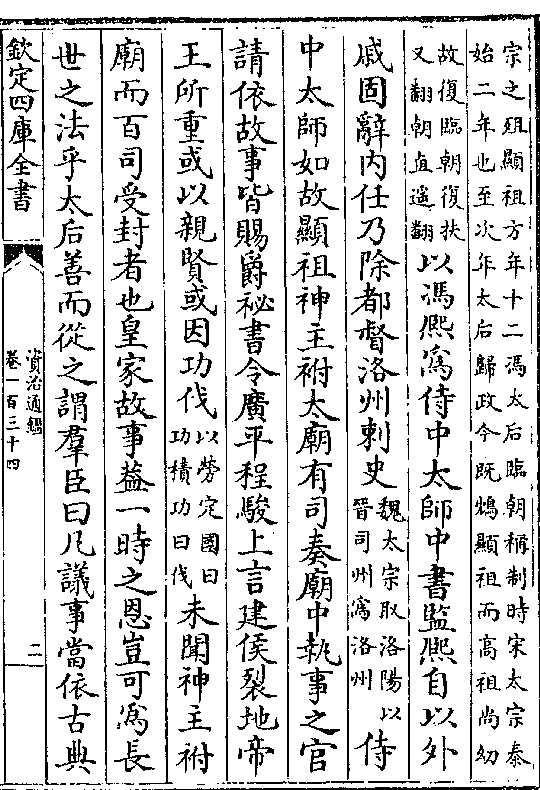 宗之殂顯祖方年十二馮太后臨朝稱制時宋太宗泰
始二年也至次年太后歸政今既鴆顯祖而高祖尚幼
故復臨朝復扶
又翻朝直遙翻
以馮熙爲侍中太師中書監熙自以外
戚固辭内任乃除都督洛州刺史
魏太宗取洛陽以
晉司州爲洛州
侍
中太師如故顯祖神主祔太廟有司奏廟中執事之官
請依故事皆賜爵祕書令廣平程駿上言建侯裂地帝
王所重或以親賢或因功伐
以勞定國曰
功積功曰伐
未聞神主祔
廟而百司受封者也皇家故事葢一時之恩豈可爲長
世之法乎太后善而從之謂羣臣曰凡議事當依古典
欽定四庫全書
資治通鑑
卷一百三十四
二